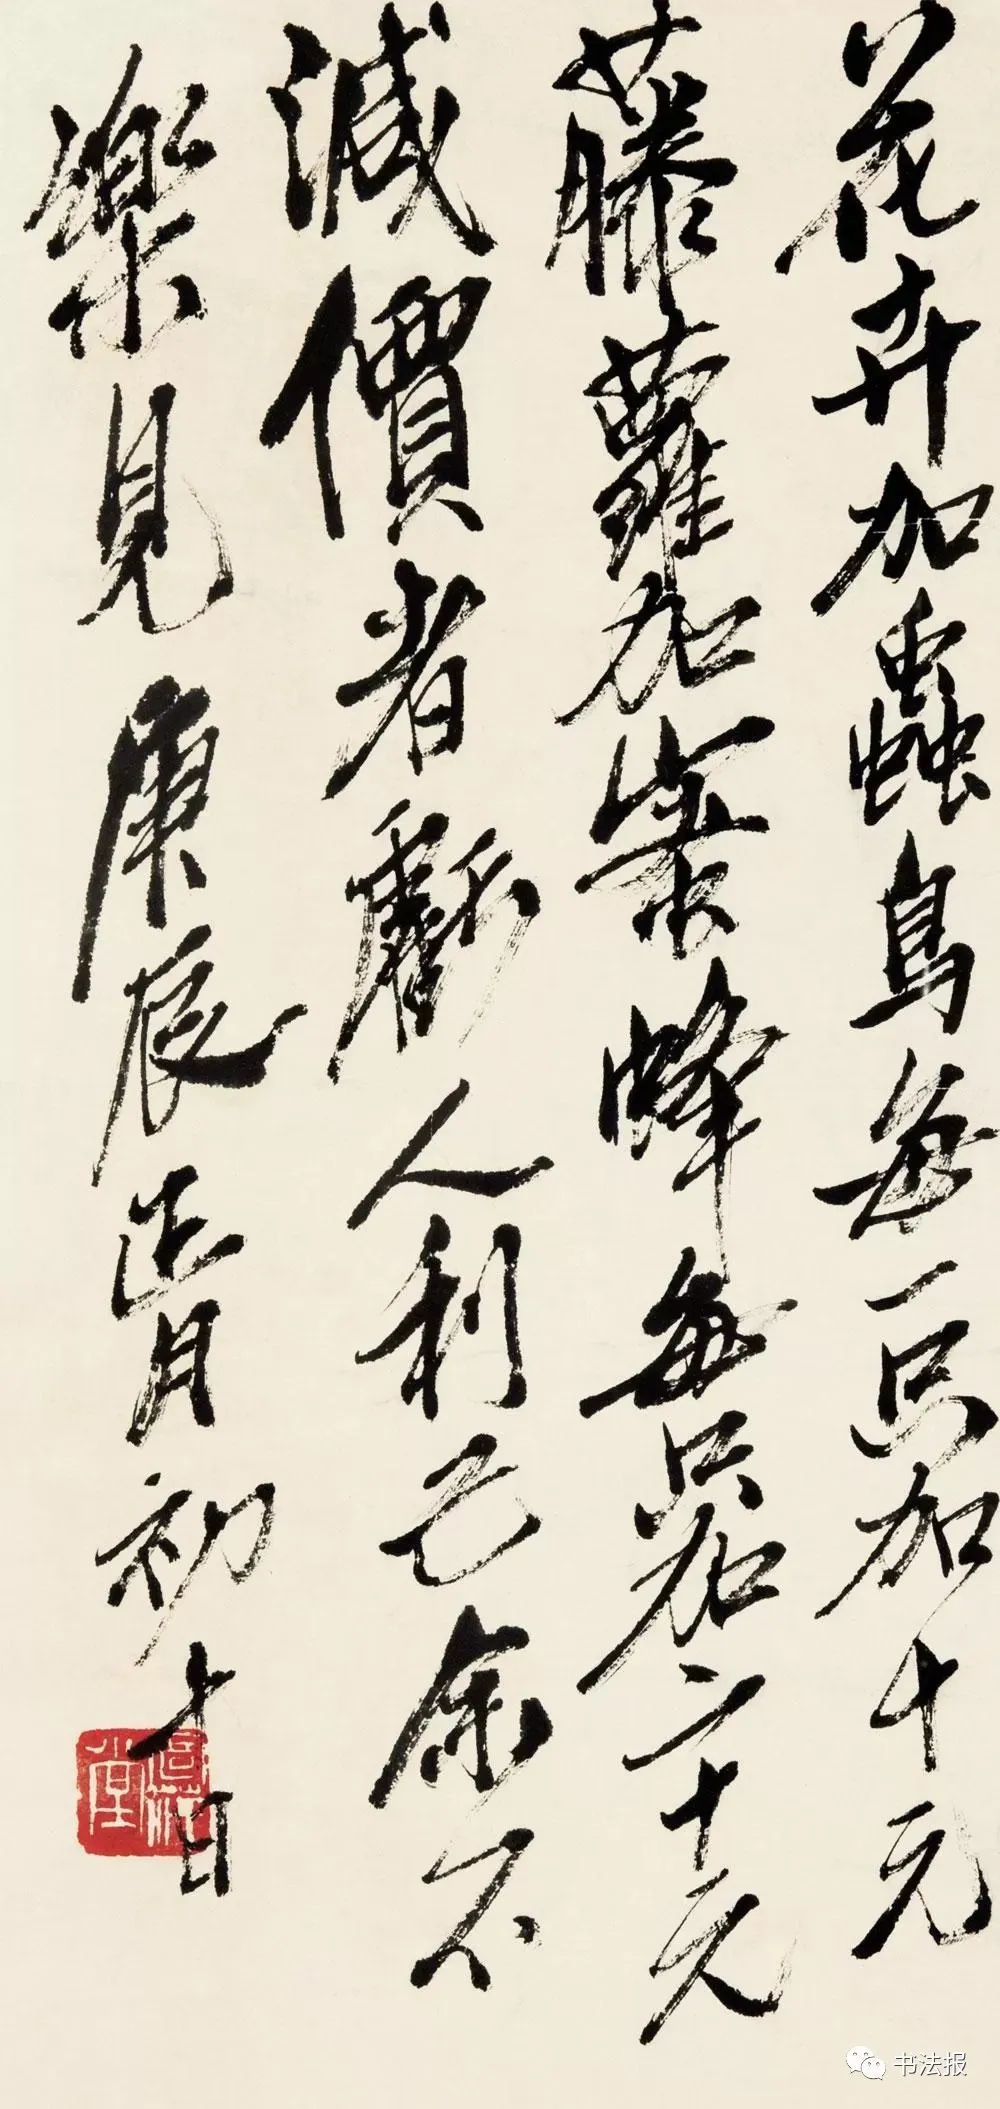 花卉加蟲鳥每一只加十元
藤蘿加蜜蜂每只加二十元
減價者虧人利己余不
樂見庚辰正月初十日
书法报